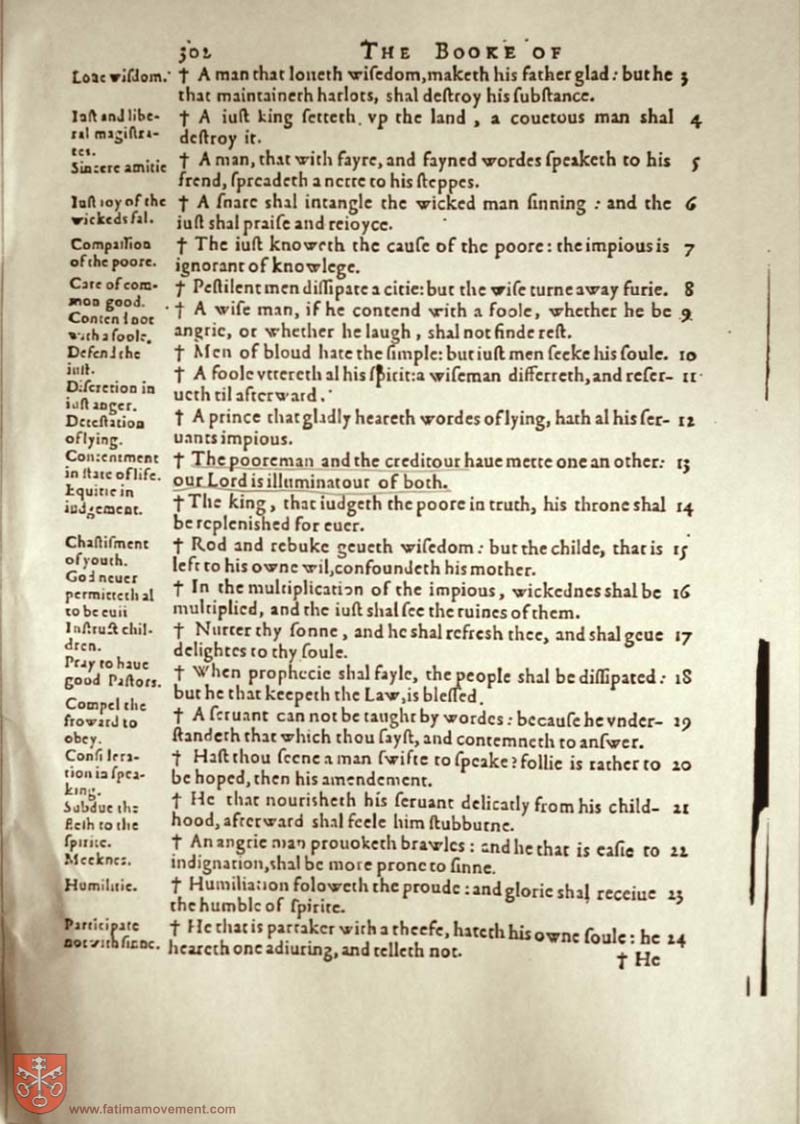 302 THE BOOKE OF
Loue wiſdom.
Iuſt and libe-
ral magiſtra-
tes.
Sincere amitie
Iuſt ioy of the
wickeds fal.
Compaſſion
of the poore.
Care of com-
mon good.
Contend not
with a foole.
Defend the
iuſt.
Diſcretion in
iuſt anger.
Deteſtation
of lying.
Contentment
in ſtate of life.
Equitie in
iudgement.
Chaſtiſment
of youth.
God neuer
permitteth al
to be euil
Inſtruct chil-
dren.
Pray to haue
good Paſtors.
Compel the
froward to
obey.
Conſidera-
tion in ſpea-
king.
Subdue the
fleſh to the
ſpirite.
Meeknes.
Humilitie.
Participate
not with ſinne.
† A man that loueth wiſedom, maketh his father glad: but he 3
that maintaineth harlots, shal deſtroy his ſubſtance.
† A iuſt king ſetteth vp the land, a couetous man shal 4
deſtroy it.
† A man, that with fayre, and fayned wordes ſpeaketh to his 5
frend, ſpreadeth a nette to his ſteppes.
† A ſnare shal intangle the wicked man ſinning: and the 6
iuſt shal praiſe and reioyce.
† The iuſt knoweth the cauſe of the poore: the impious is 7
ignorant of knowlege.
† Peſtilent men diſſipate a citie: but the wiſe turne away furie. 8
† A wiſe man, if he contend with a foole, whether he be 9
angrie, or whether he laugh, shal not finde reſt.
† Men of bloud hate the ſimple: but iuſt men ſeeke his ſoule. 10
† A foole vttereth al his ſpirit: a wiſeman differreth, and reſer- 11
ueth til afterward.
† A prince that gladly heareth wordes of lying, hath al his ſer- 12
uants impious.
† The pooreman and the creditour haue mette one an other: 13
our Lord is illuminatour of both.
† The king, that iudgeth the poore in truth, his throne shal 14
be replenished for euer.
† Rod and rebuke geueth wiſedom: but the childe, that is 15
left to his owne wil, confoundeth his mother.
† In the multiplication of the impious, wickednes shal be 16
multiplied, and the iuſt shal ſee the ruines of them.
† Nurter thy ſonne, and he shal refresh thee, and shal geue 17
delightes to thy ſoule.
† When prophecie shal fayle, the people shal be diſſipated: 18
but he that keepeth the Law, is bleſſed.
† A ſeruant can not be taught by wordes: becauſe he vnder- 19
ſtandeth that which thou ſayſt, and contemneth to anſwer.
† Haſt thou ſeene a man ſwifte to ſpeake? follie is rather to 20
be hoped, then his amendement.
† He that nourisheth his ſeruant delicatly from his child- 21
hood, afterward shal feele him ſtubburne.
† An angrie man prouoketh brawles: and he that is eaſie to 22
indignation, shal be more prone to ſinne.
† Humiliation foloweth the proude: and glorie shal receiue 23
the humble of ſpirite.
† He that is partaker with a theefe, hateth his owne ſoule: he 24
heareth one adiuring, and telleth not.
† He
www.fatimamovement.com